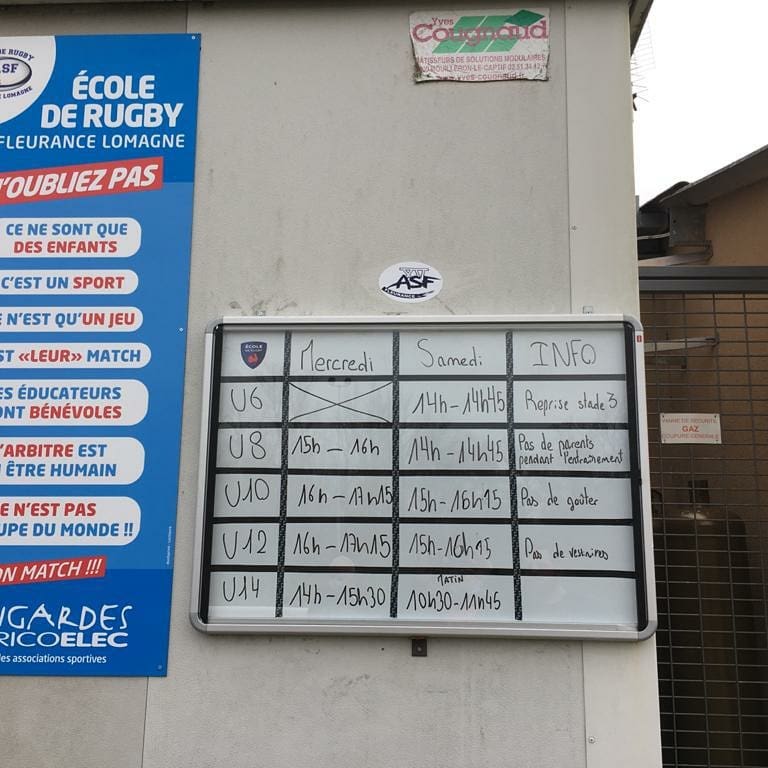 DE RUGBY
ASF
LOMAGNE
ÉCOLE
DE RUGBY
FLEURANCE LOMAGNE
'OUBLIEZ PAS
CE NE SONT QUE
DES ENFANTS
C'EST UN SPORT
N'EST QU'UN JEU
ST «LEUR» MATCH
ES ÉDUCATEURS
ONT BÉNÉVOLES
'ARBITRE EST
ÊTRE HUMAIN
E N'EST PAS
OUPE DU MONDE !!
ON MATCH !!!
UGARDES
RICOELEC
les associations sportives
Yves
Cougnaud
BÂTISSEURS DE SOLUTIONS MODULAIRES
MOUILLERON-LE-CAPTIF 02 51
www.yves-cougnaud.
ASF
FLEURANCE
ÉCOLE
DE RUGBY
Mercredi Samedi INFO
U6 14h-14h45 Reprise stade 3
U8 15h-16h 14h-14h45 Pas de parents
pendant l'entrainement
U10 16h-17h15 15h-16h15 Pas de goûter
U12 16h-17h15 15h-16h15 Pas de vestiaires
U14 14h-15h30 MATIN 10h30-11h45
VANNE DE SÉCURITÉ
GAZ
COUPURE GÉNÉRALE